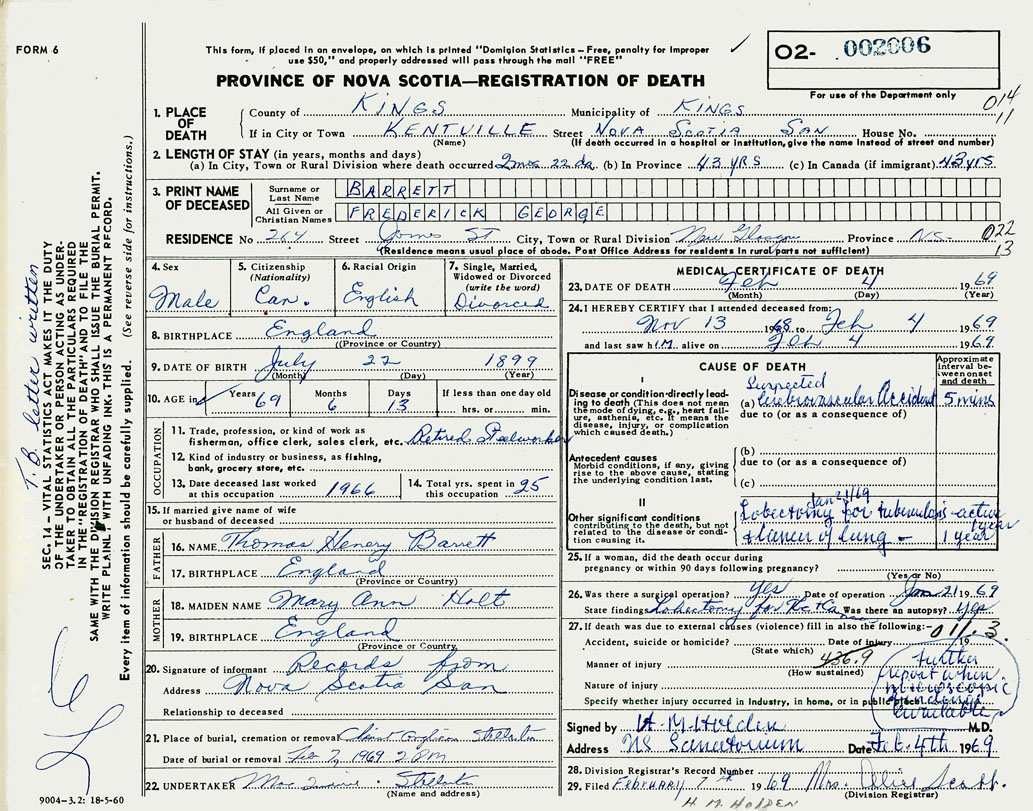 FORM 6
This form, if placed in an envelope, on which is printed "Dominion Statistics – Free, penalty for improper
use $50," and properly addressed will pass through the mail "FREE"
✓
O2- 002006
For use of the Department only
PROVINCE OF NOVA SCOTIA—REGISTRATION OF DEATH
014
11
1. PLACE OF DEATH
County of KINGS Municipality of KINGS
If in City or Town KENTVILLE Street NOVA SCOTIA SAN House No.
(Name) (If death occurred in a hospital or institution, give the name instead of street and number)
2. LENGTH OF STAY (in years, months and days)
(a) In City, Town or Rural Division where death occurred 2 mos 22 da (b) In Province 43 YRS (c) In Canada (if immigrant) 43 yrs
3. PRINT NAME OF DECEASED
Surname or Last Name BARRETT
All Given or Christian Names FREDERICK GEORGE
RESIDENCE No 264 Street James St City, Town or Rural Division New Glasgow Province N.S.
022
13
(Residence means usual place of abode. Post Office Address for residents in rural parts not sufficient)
4. Sex
Male
5. Citizenship
(Nationality)
Can.
6. Racial Origin
English
7. Single, Married, Widowed or Divorced
(write the word)
Divorced
8. BIRTHPLACE England
(Province or Country)
9. DATE OF BIRTH July 22 1899
(Month) (Day) (Year)
10. AGE in Years 69 Months 6 Days 13 If less than one day old
hrs. or min.
OCCUPATION
11. Trade, profession, or kind of work as
fisherman, office clerk, sales clerk, etc. Retired Steelworker
12. Kind of industry or business, as fishing,
bank, grocery store, etc.
13. Date deceased last worked
at this occupation 1966
14. Total yrs. spent in
this occupation 25
15. If married give name of wife
or husband of deceased
FATHER
16. NAME Thomas Henry Barrett
17. BIRTHPLACE England
(Province or Country)
MOTHER
18. MAIDEN NAME Mary Ann Holt
19. BIRTHPLACE England
(Province or Country)
20. Signature of informant Records from
Address Nova Scotia San
Relationship to deceased
21. Place of burial, cremation or removal Christ Anglican Stellarton
Date of burial or removal Feb 7, 1969 2 PM
22. UNDERTAKER Stellarton
(Name and address)
MEDICAL CERTIFICATE OF DEATH
23. DATE OF DEATH Feb 4 1969
(Month) (Day) (Year)
24. I HEREBY CERTIFY that I attended deceased from:
Nov 13 1968 to Feb 4 1969
and last saw h IM alive on Feb 4 1969
CAUSE OF DEATH
Approximate interval between onset and death
I
Disease or condition directly leading to death (This does not mean the mode of dying, e.g., heart failure, asthenia, etc. It means the disease, injury, or complication which caused death.)
Suspected
(a) Cerebrovascular Accident 5 mins
due to (or as a consequence of)
Antecedent causes
Morbid conditions, if any, giving rise to the above cause, stating the underlying condition last.
(b)
due to (or as a consequence of)
(c)
II
Other significant conditions
contributing to the death, but not related to the disease or condition causing it.
Jan 21/69
Lobectomy for tuberculosis - active 1 year
& Cancer of Lung – 1 year
25. If a woman, did the death occur during
pregnancy or within 90 days following pregnancy?
(Yes or No)
26. Was there a surgical operation? Yes Date of operation Jan 21 1969
State findings Lobectomy for Was there an autopsy? Yes
27. If death was due to external causes (violence) fill in also the following:- 011.3
Accident, suicide or homicide? Date of injury 19
(State which) 436.9
Manner of injury
(How sustained)
Nature of injury
Specify whether injury occurred in industry, in home, or in public place
Further
report when
microscopic
findings
available
Signed by H. M. Holden M.D.
Address NS Sanatorium Date Feb. 4th 1969
28. Division Registrar's Record Number
29. Filed February 7th 1969 Mrs. Olive
(Division Registrar)
H. M. HOLDEN
T.B. letter written
SEC. 14 – VITAL STATISTICS ACT MAKES IT THE DUTY
OF THE UNDERTAKER OR PERSON ACTING AS UNDER-
TAKER TO OBTAIN ALL THE PARTICULARS REQUIRED
IN THE "REGISTRATION OF DEATH" AND TO FILE THE
SAME WITH THE DIVISION REGISTRAR WHO SHALL ISSUE THE BURIAL PERMIT.
WRITE PLAINLY WITH UNFADING INK. THIS IS A PERMANENT RECORD.
Every item of information should be carefully supplied. (See reverse side for instructions.)
9004–3.2: 18-5-60